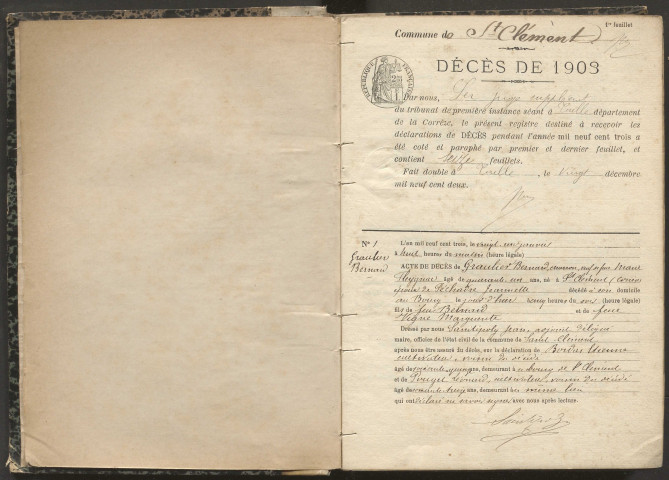 1er feuillet
Commune de St Clément
DÉCÈS DE 1903
RÉPUBLIQUE FRANÇAISE
Par nous, Ier juge suppléant
du tribunal de première instance séant à Tulle département
de la Corrèze, le présent registre destiné à recevoir les
déclarations de DÉCÈS pendant l'année mil neuf cent trois a
été coté et paraphé par premier et dernier feuillet, et
contient seize feuillets.
Fait double à Tulle, le vingt décembre
mil neuf cent deux.
N° 1
Graulier
Bernard
L'an mil neuf cent trois, le vingt un janvier
à huit heures du matin (heure légale)
ACTE DE DÉCÈS de Graulier Bernard
âgé de quarante un ans, né à St Clément (Corrèze)
époux de Jeannette décédé à son domicile
au Bourg le jour d'hier onze heures du soir (heure légale)
fils de feu Bernard et de feue
Marguerite
Dressé par nous Saintipoly Jean, adjoint délégué
maire, officier de l'état civil de la commune de Saint-Clément
après nous être assuré du décès, sur la déclaration de Bordas Etienne
cultivateur, voisin du décédé
âgé de ans, demeurant à au bourg de St Clément
et de Pouget Léonard, cultivateur, voisin du décédé
âgé de ans, demeurant à au même lieu
qui ont déclaré ne savoir signer avec nous après lecture.